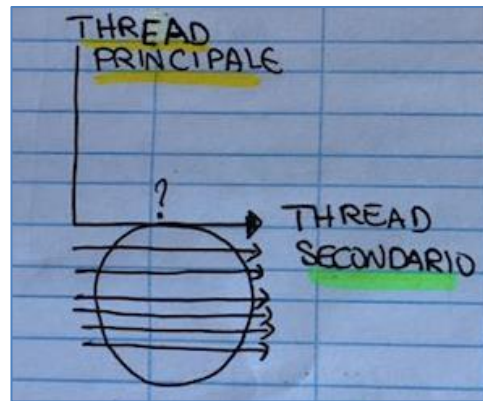 THREAD
PRINCIPALE
?
THREAD
SECONDARIO